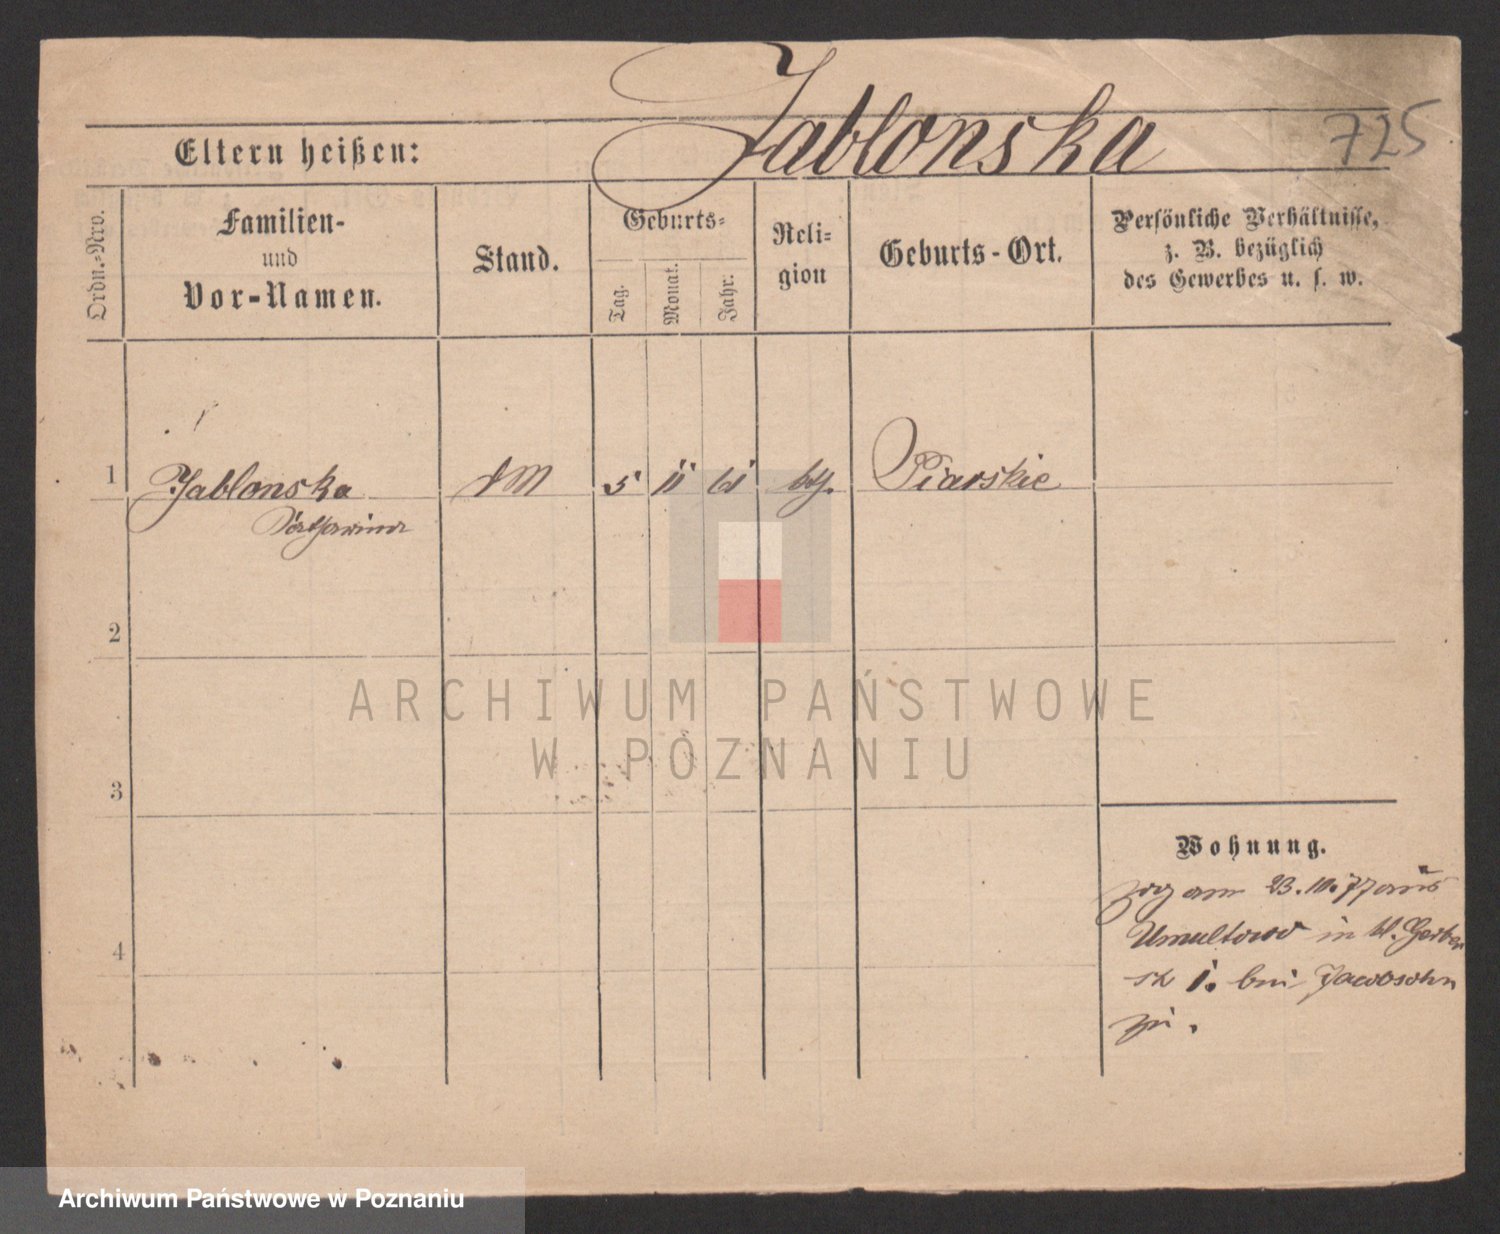 Jablonska
725
Eltern heißen:
Ordn.-Nro.
Familien-
und
Vor-Namen.
Stand.
Geburts-
Tag.
Monat.
Jahr.
Reli-
gion
Geburts-Ort.
Persönliche Verhältnisse,
z. B. bezüglich
des Gewerbes u. s. w.
1
Jablonska
Catharina
5 11 61
kth.
Piarskie
2
3
4
Wohnung.
zog am 23.10.77 aus
Umultowo in kl. Gerber
str 1. bei Jacobsohn
zu.
ARCHIWUM PAŃSTWOWE
W POZNANIU
Archiwum Państwowe w Poznaniu